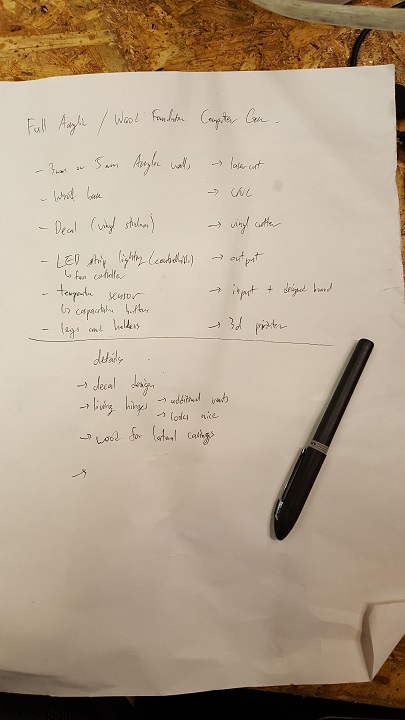 Full Acrylic / Wood Foundation Computer Case.
- 3mm or 5mm Acrylic walls → laser cut
- Wood base → CNC
- Decal (vinyl stickers) → vinyl cutter
- LED strip lighting (controllable) → output
↳ fan controller
- temperature sensor → input + designed board
↳ capacitive button
- legs and holders → 3d printer
details
→ decal design
→ living hinges → additional vents
→ looks nice
→ wood for lateral casings
→